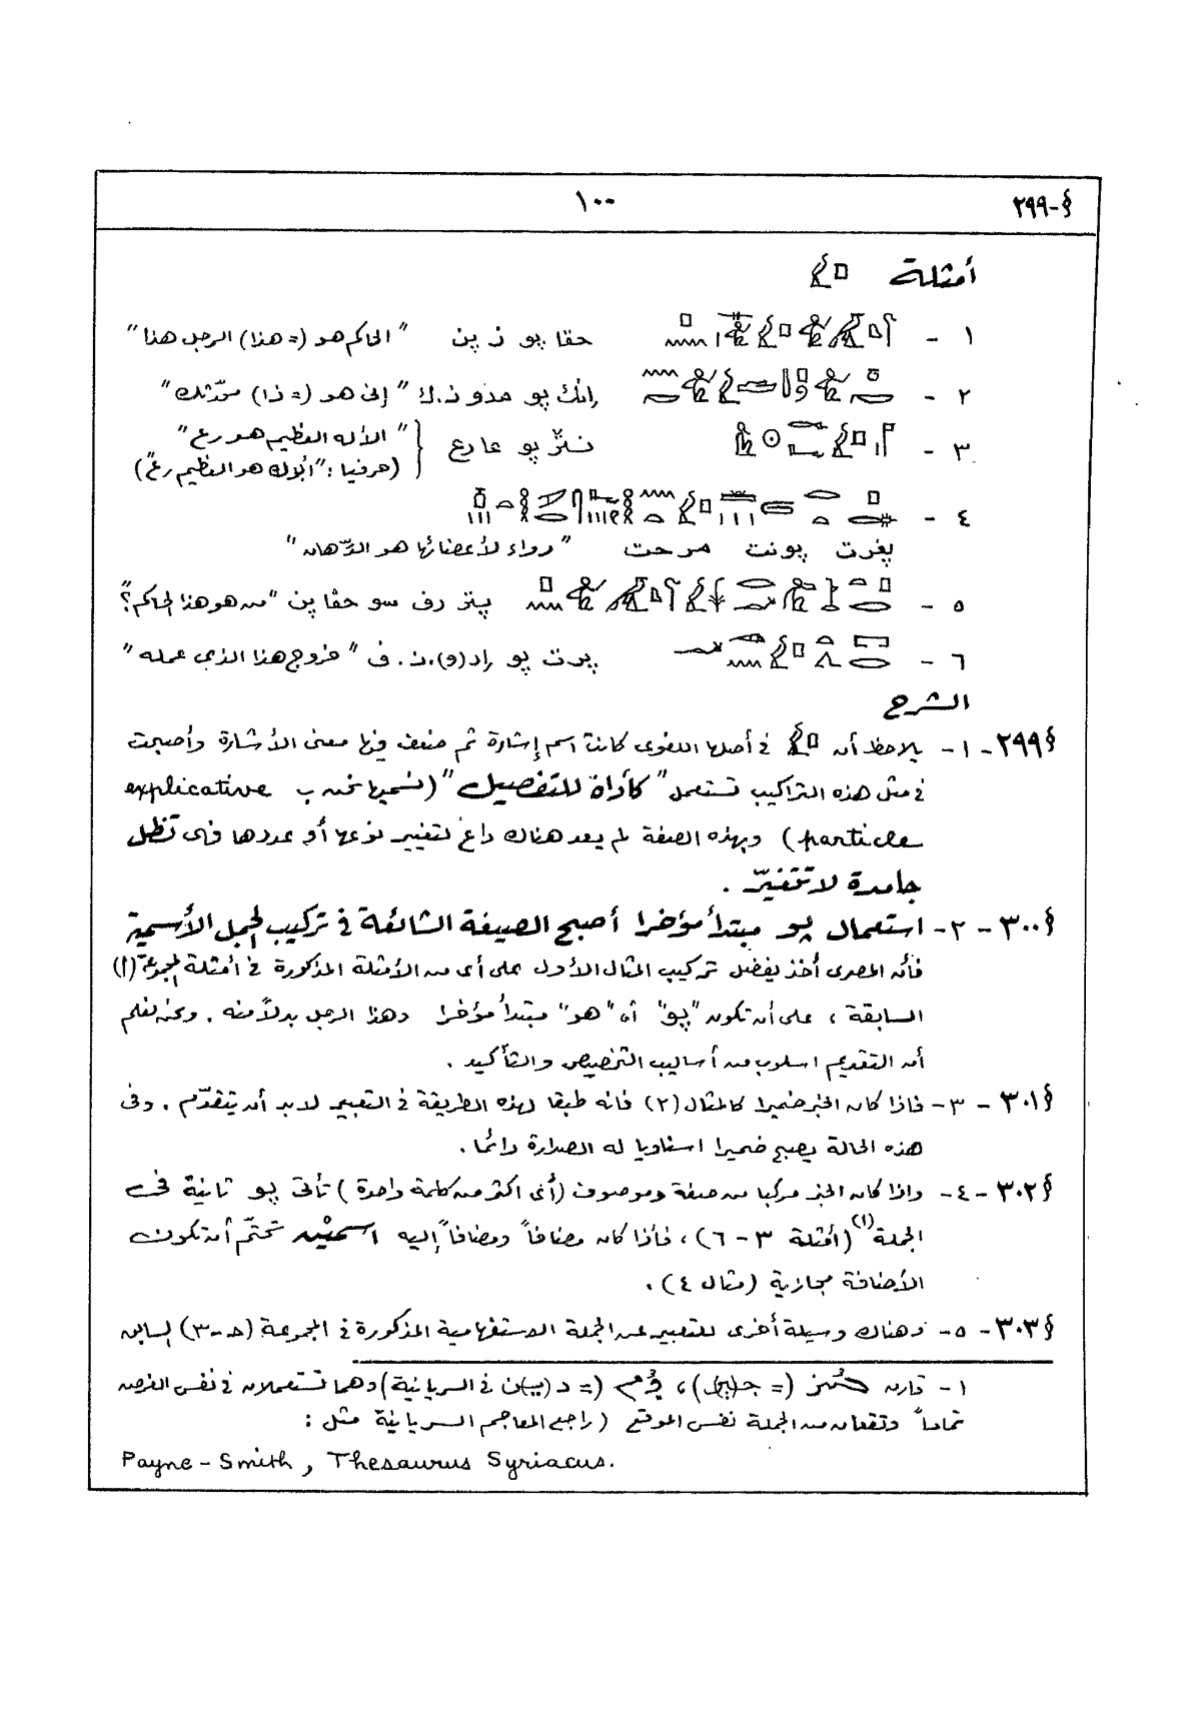 §-٢٩٩
١٠٠
أمثلة
١ - حقا پو ز پن "الحاكم هو (= هذا) الرجل هذا"
٢ - إنك پو مدو ن.ك "إنى هو (= ذا) محدّثك"
٣ - نتر پو عا رع "الأله العظيم هو رع"
(حرفيا: "الأله هو العظيم رع")
٤ -
پغرت پو نت مرحت "دواء لأعضائها هو الدّهان"
٥ - پتر رف سو حقا پن "من هو هذا الحاكم؟"
٦ - پرت پو راد(و).ن.ف "خروج هذا الذى عمله"
الشرح
§٢٩٩ - ١ - يلاحظ أن فى أصلها اللغوى كانت اسم إشارة ثم ضعف فيها معنى الأشارة وأصبحت
فى مثل هذه التراكيب تستعمل "كأداة للتفصيل" (نسميها نحن ب explicative
particle) وبهذه الصفة لم يعد هناك داع لتغيير نوعها أو عددها فهى تظل
جامدة لا تتغيّر.
§٣٠٠ - ٢ - استعمال پو مبتدأ مؤخرا أصبح الصيغة الشائعة فى تركيب الجمل الأسمية
فأن المصرى أخذ يفضل تركيب المثال الأول على أى من الأمثلة المذكورة فى أمثلة المجموعة (أ)
السابقة، على أن تكون "پو" أى "هو" مبتدأ مؤخرا وهذا الرجل بدلاً منه. ونحن نعلم
أن التقديم اسلوب من أساليب التخصيص والتأكيد.
§٣٠١ - ٣ - فاذا كان الخبر ضميرا كالمثال (٢) فانه طبقا لهذه الطريقة فى التعبير لابد أن يتقدّم. وفى
هذه الحالة يصبح ضميرا اسناديا له الصدارة دائما.
§٣٠٢ - ٤ - واذا كان الخبر مركبا من صفة وموصوف (أى اكثر من كلمة واحدة) تأتى پو ثانية فى
الجملة(١) (أمثلة ٣ - ٦)، فأذا كان مضافاً ومضافاً إليه اسمين تحتّم أن تكون
الأضافة مجازية (مثال ٤).
§٣٠٣ - ٥ - وهناك وسيلة أخرى للتعبير عن الجملة الاستفهامية المذكورة فى المجموعة (د-٣) السابق
١ - قارن (= )، (= د(ي)ن فى السريانية) وهما تستعملان فى نفس الغرض
تماماً وتقعان من الجملة نفس الموقع (راجع المعاجم السريانية مثل:
Payne-Smith, Thesaurus Syriacus.